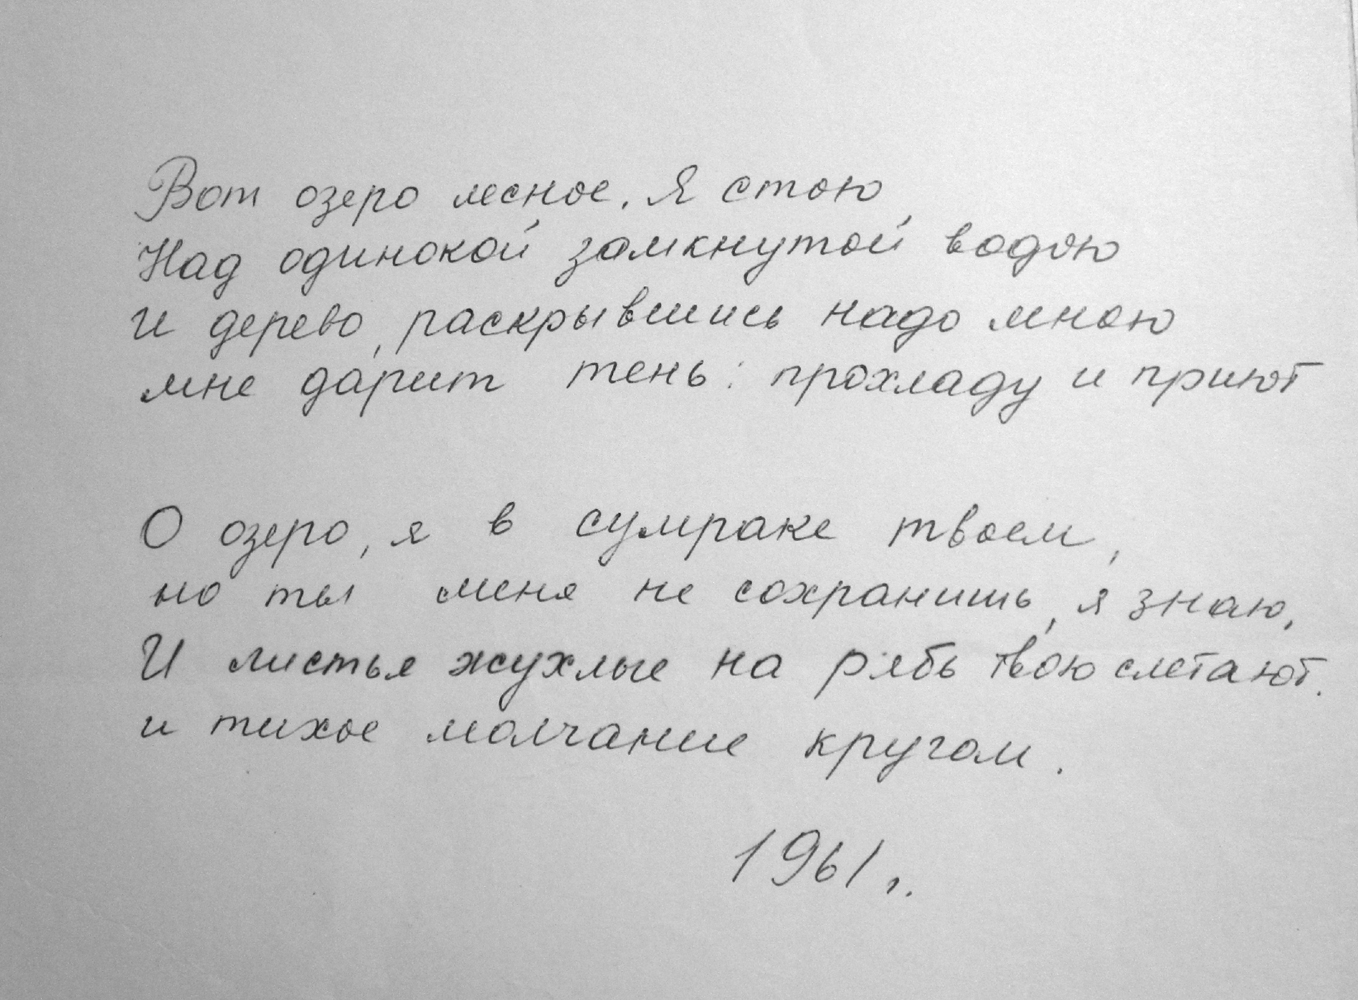 Вот озеро лесное. Я стою
Над одинокой замкнутой водою
и дерево, раскрывшись надо мною
мне дарит тень: прохладу и приют
О озеро, я в сумраке твоем,
но ты меня не сохранишь, я знаю,
И листья жухлые на рябь твою слетают.
и тихое молчание кругом.
1961 г.